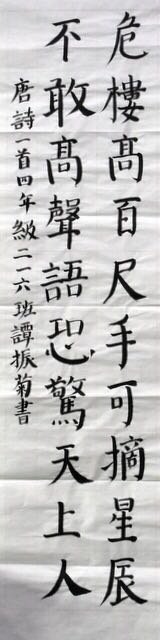 危樓髙百尺手可摘星辰
不敢髙聲語恐驚天上人
唐詩一首四年級二一六班譚振菊書